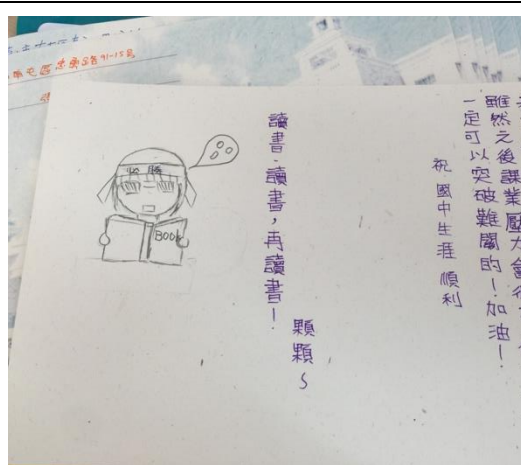 雖然之後課業壓力會很
一定可以突破難關的！加油！
祝 國中生涯 順利
讀書、讀書，再讀書！
顆顆～
必勝
BOOK